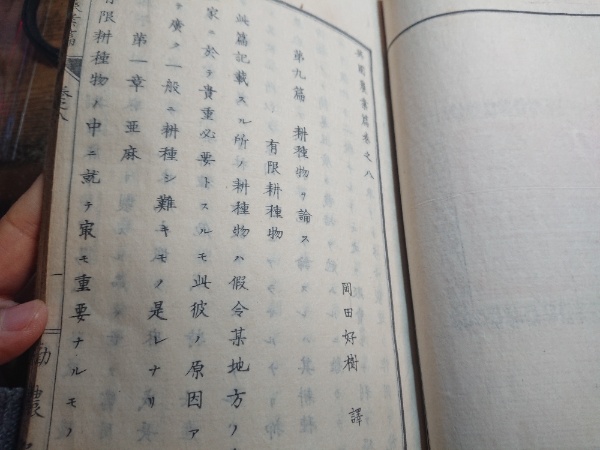 英國農業篇卷之八
岡田好樹 譯
第九篇 耕種物ヲ論ス
有限耕種物
此篇記載スル所ノ耕種物ハ假令某地方ノ
家ニ於テ貴重必要トスルモ此彼ノ原因ア
テ廣ク一般ニ耕種シ難キモノ是レナリ
第一章 亞麻
有限耕種物ノ中ニ就テ㝡モ重要ナルモノ
業篇
卷之八
一
勸農